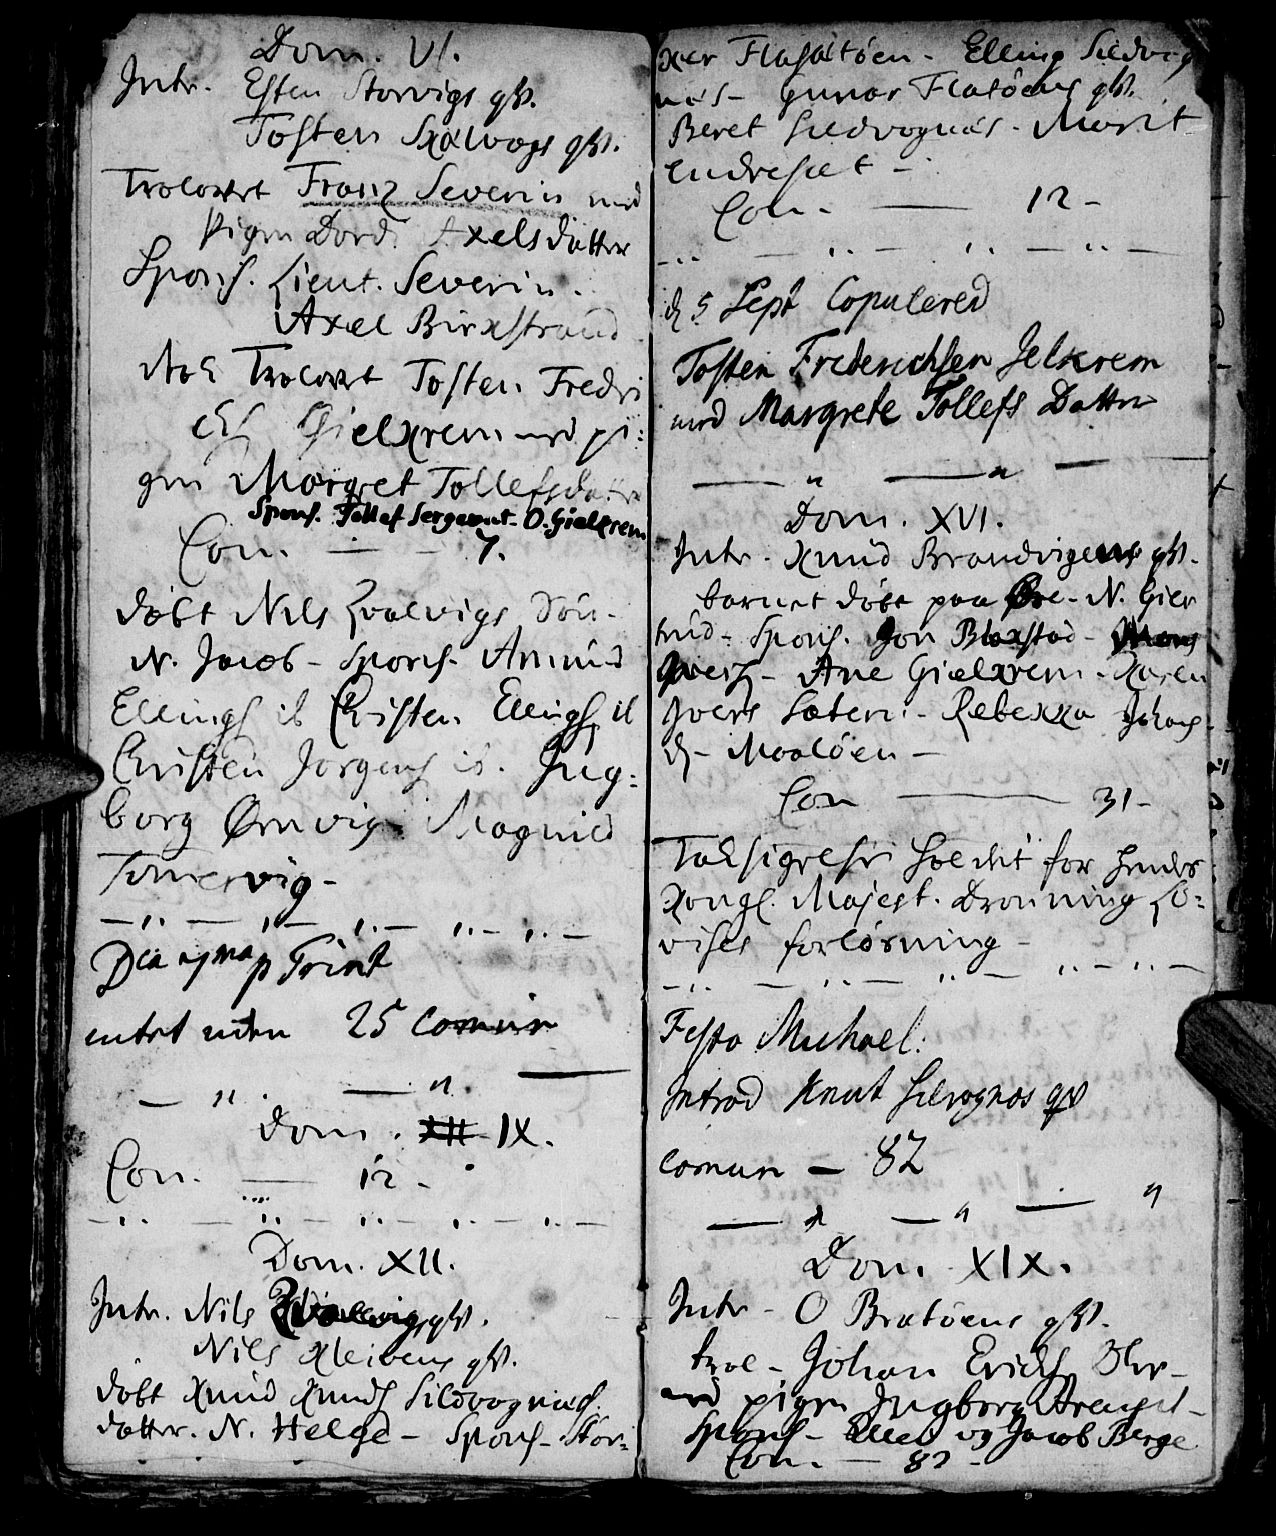 Dom. VI.
Intr. Esten Storvigs qv.
Tosten Skalvogs qv.
Trolovet Franz Severin med
Pigen Dord. Axelsdatter
Spons. Lieut. Severin.
Axel Birkstrand
Nok Trolovet Tosten Fredri
chs. Gielkrem med pi:
gen Margret Tollefsdatter
Spons. Tollef Sergeant. O. Gielkrem
Com. — 7.
döbt Nils Qvalvigs Sön.
N. Jacob - Spons. Amund
Ellings. ib Christen Ellings. ib
Christen Jörgens ib. Ing-
borg Ørnvig Magnild
Tömervig -
Dca 7ma p Trint
intet uden 25 comun
Dom. XII IX.
Com. — 12 -
Dom. XII.
Intr. Nils Qvalvigs qv.
Nils Kleivens qv.
döbt Knud Knuds. Sildvognæs.
datter. N. Helge - Spons - Stor-
ker Flasætöen - Elling Sildvog
næs - Gunar Flatöens qv.
Beret Sildvognæs - Marit
Endresæt -
Com. — 12 -
d 5 Sept Copulered
Tosten Frederichsen Jelkrem
med Margrete Tollefs Datter
Dom. XVI.
Intr. Knud Brandvigens qv.
barnet döbt paa Øre - N. Gier
trud - Spons. Jon Blakstad -
Ivers. - Ane Gielkrem - Karen
Ivers Sæter - Rebekka Johans
d - Maalöen -
Com — 31 -
Taksigelse holdet for hendes
Kongl. Majest. Dronning Lo-
vises forlösning -
Festo Michael.
Introd Knut Silvognæs qv
comun — 82
Dom. XIX.
Intr - O Bratöens qv.
trol - Johan Erichs.
med pigen Ingborg
Spons - og Jacob Berge
Com. — 82 -